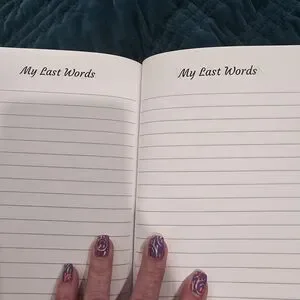 My Last Words
My Last Words